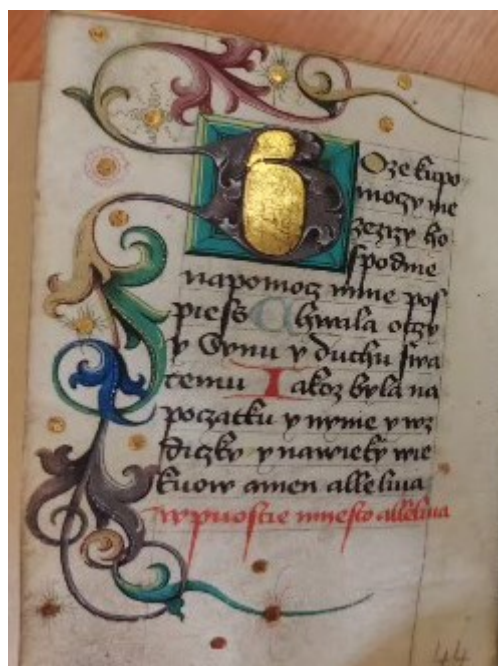 Boze kupo
moczy me
zezrzy ho
spodine
napomocz mne pos
piess Chwala otczy
y Synu y duchu swa
temu Iakoz byla na
poczatku y nynie y wz
diczky y nawieky wie
kuow amen alleluia
wpuostie miesto alleluia
44